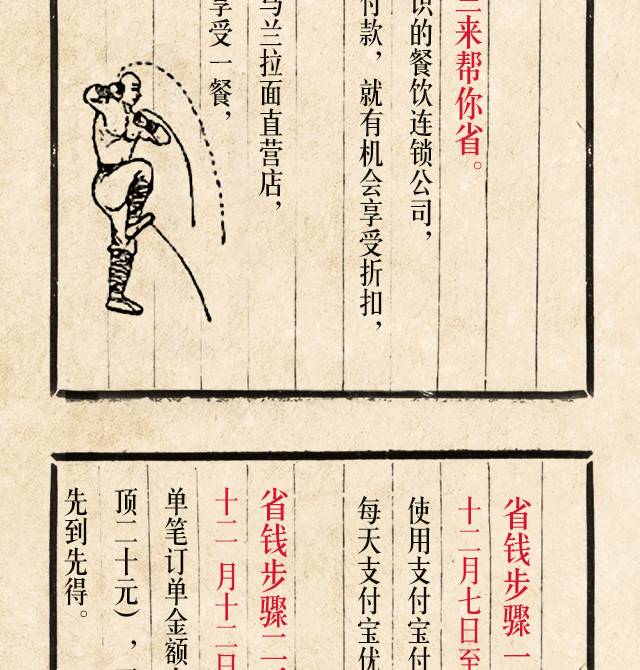 来帮你省。
的餐饮连锁公司，
付款，就有机会享受折扣，
兰拉面直营店，
享受一餐，
省钱步骤一
十二月七日至
使用支付宝付
每天支付宝优
省钱步骤二
十二月十二日
单笔订单金额
顶二十元），
先到先得。